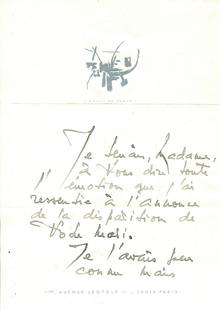 Je tenais, Madame,
à vous dire toute
l'émotion que j'ai
ressentie à l'annonce
de la disparition de
Votre mari.
Je l'avais peu
connu mais
AVENUE LÉOPOLD II PARIS